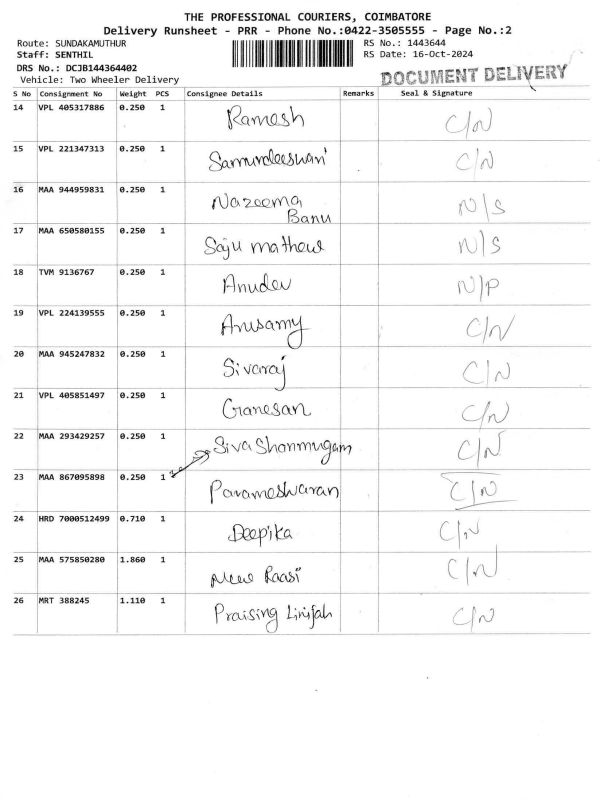 THE PROFESSIONAL COURIERS, COIMBATORE
Delivery Runsheet - PRR - Phone No.:0422-3505555 - Page No.:2
Route: SUNDAKAMUTHUR
RS No.: 1443644
Staff: SENTHIL
RS Date: 16-Oct-2024
DRS No.: DCJB144364402
Vehicle: Two Wheeler Delivery
DOCUMENT DELIVERY
S No Consignment No Weight PCS Consignee Details Remarks Seal & Signature
14 VPL 405317886 0.250 1 Ramesh C/N
15 VPL 221347313 0.250 1 C/N
16 MAA 944959831 0.250 1 Nazeema Banu N/S
17 MAA 650580155 0.250 1 Saju mathew N/S
18 TVM 9136767 0.250 1 Anudev N/P
19 VPL 224139555 0.250 1 Arusamy C/N
20 MAA 945247832 0.250 1 Sivaraj C/N
21 VPL 405851497 0.250 1 Ganesan C/N
22 MAA 293429257 0.250 1 Siva Shanmugam C/N
23 MAA 867095898 0.250 1 Parameshwaran C/N
24 HRD 7000512499 0.710 1 Deepika C/N
25 MAA 575850280 1.860 1 New Raasi C/N
26 MRT 388245 1.110 1 Praising Linijah C/N